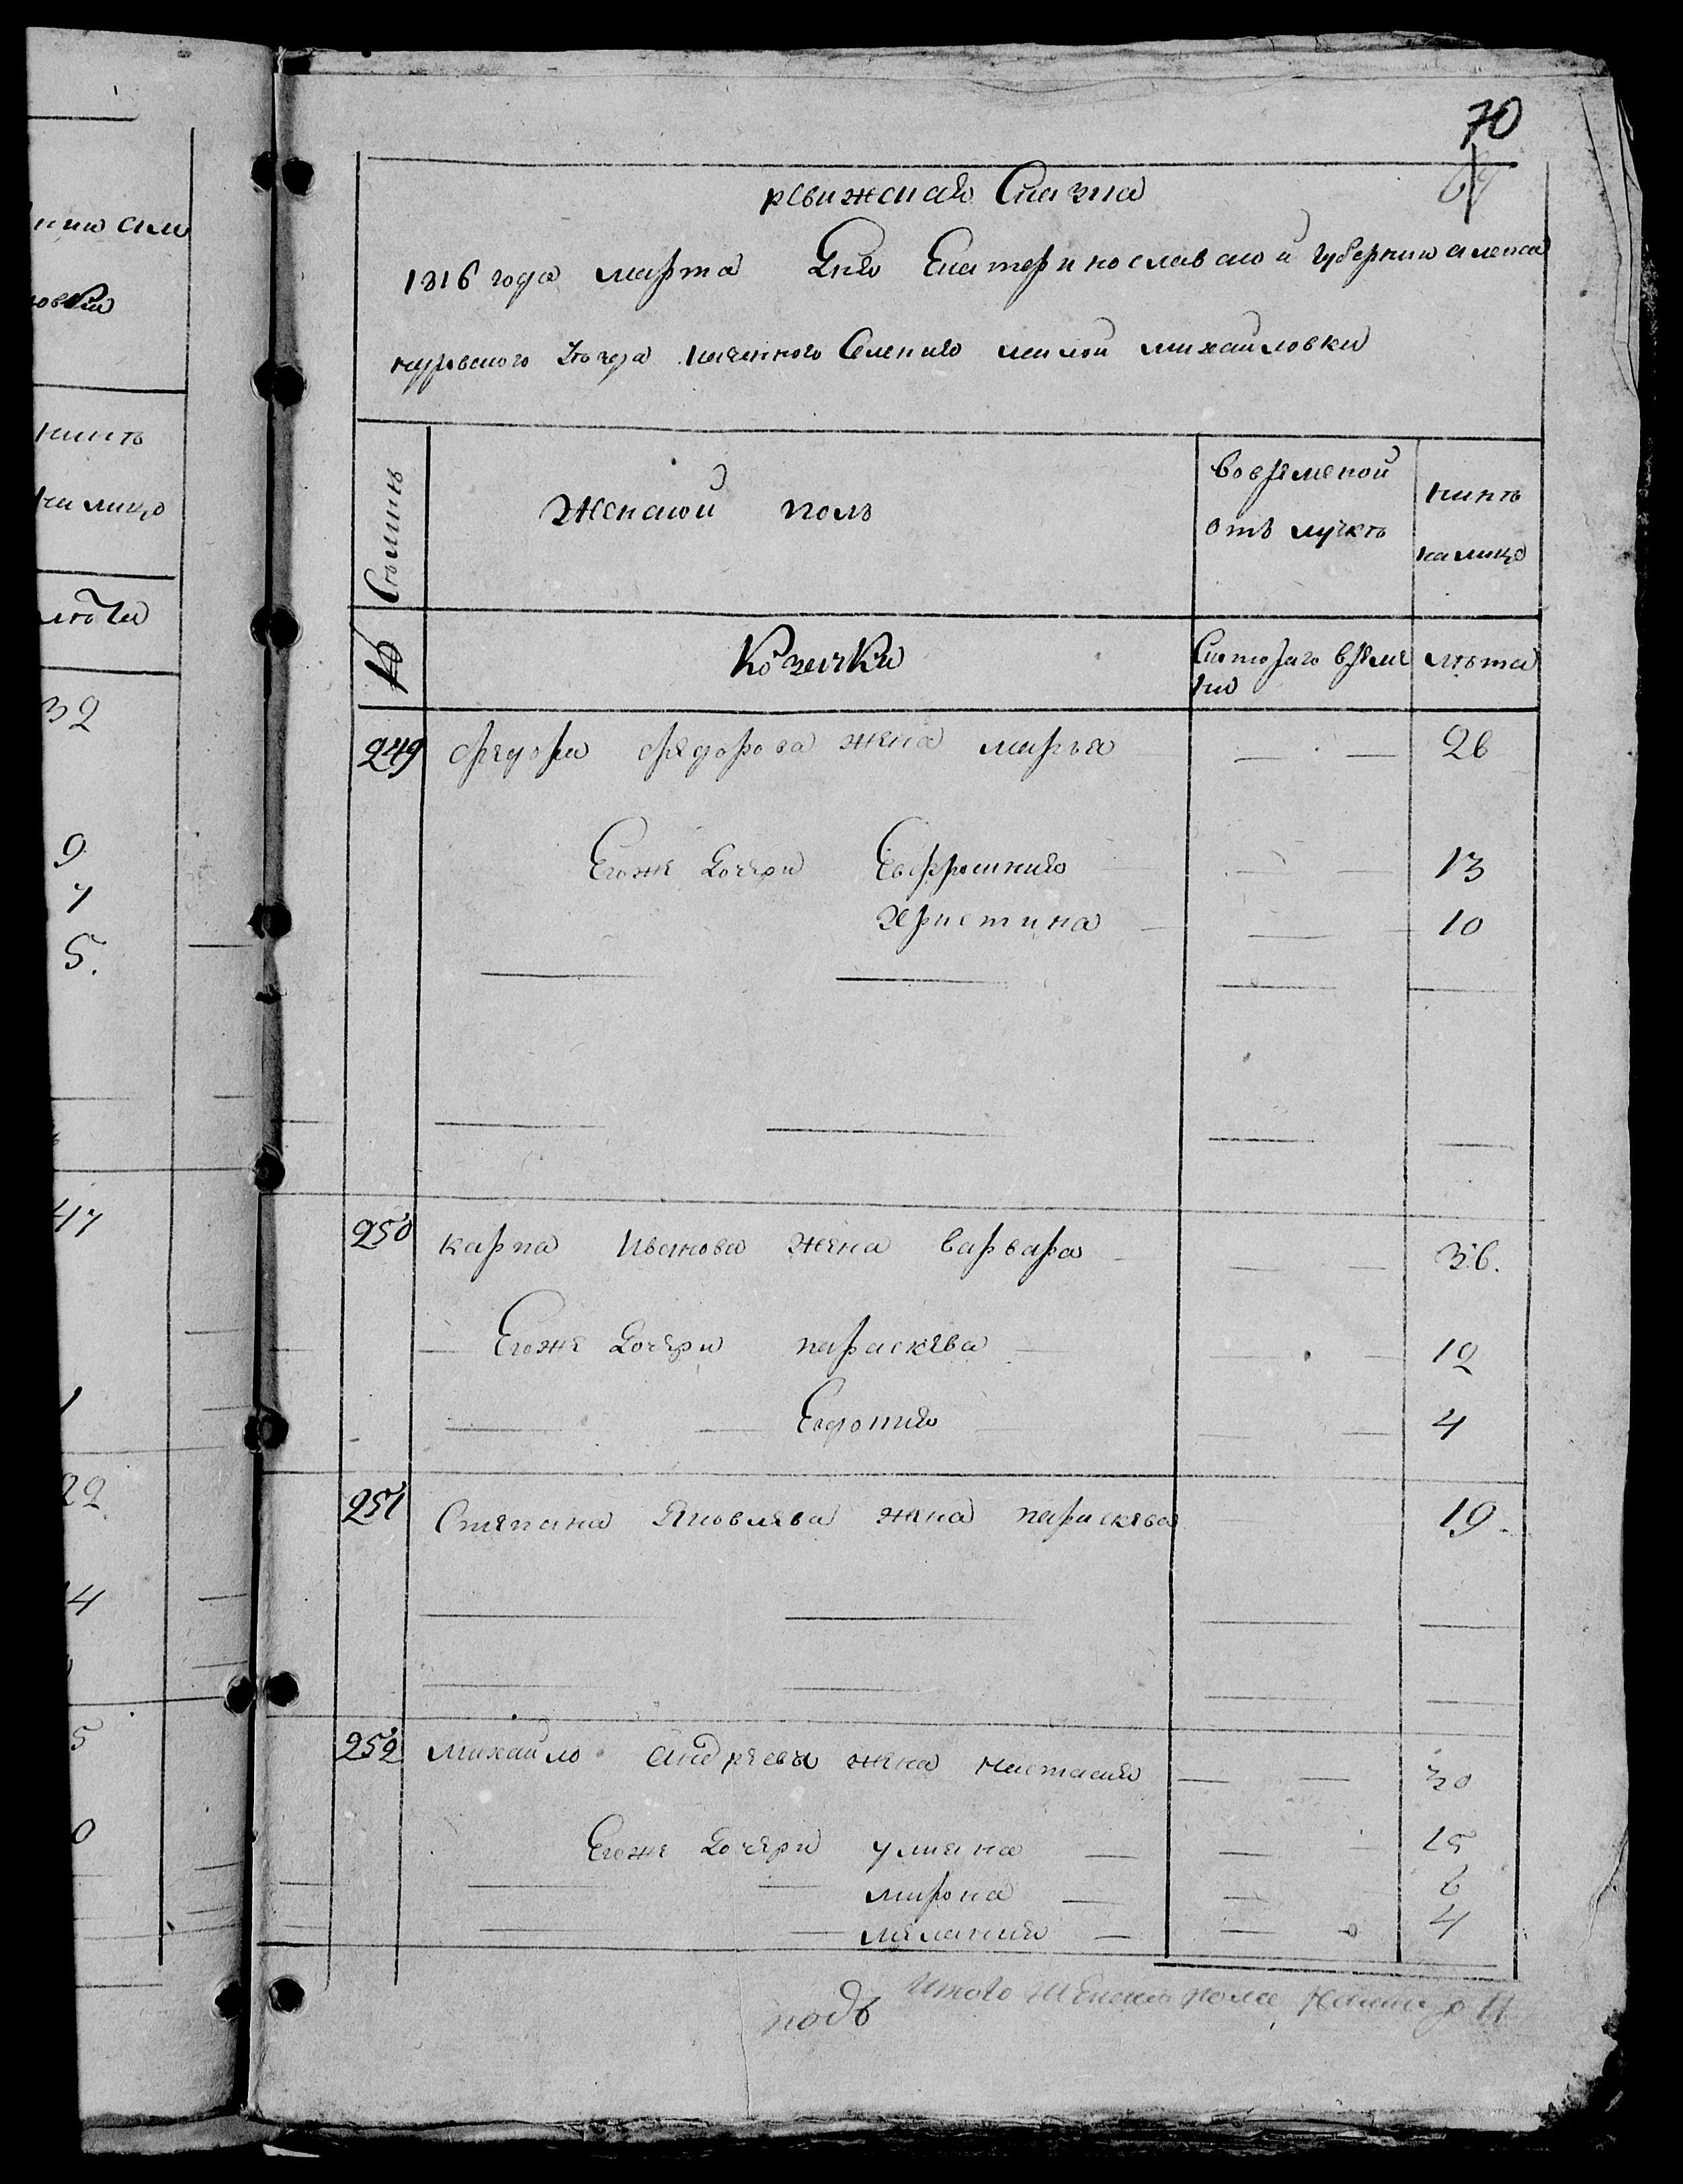 70
ревижская Сказка
1816 года марта Дня Екатеринославской губернии алекса
ндровского уезда казенного Селения малой михайловки
Семьи
Женской полъ
Вовременой
отъ лучкѣ
нинѣ
налицо
Козачки
Скоторого време
ни
лѣта
249 федора федорова жена марья 26
Егоже Дочери Евфросиния 13
Христина 10
250 карпа Иванова жена варвара 36.
Егоже Дочери параскева 12
Евдокия 4
251 Степана Яковлева жена параскева 19.
252 михайло андреева жена настасия 30
Егоже Дочери улияна 15
мирона 6
мелания 4
Итого женска пола налицо 11
подъ
нии але
овки
нинѣ
на лицо
лѣта
32
9
7
5.
47
1
22
14
5
0